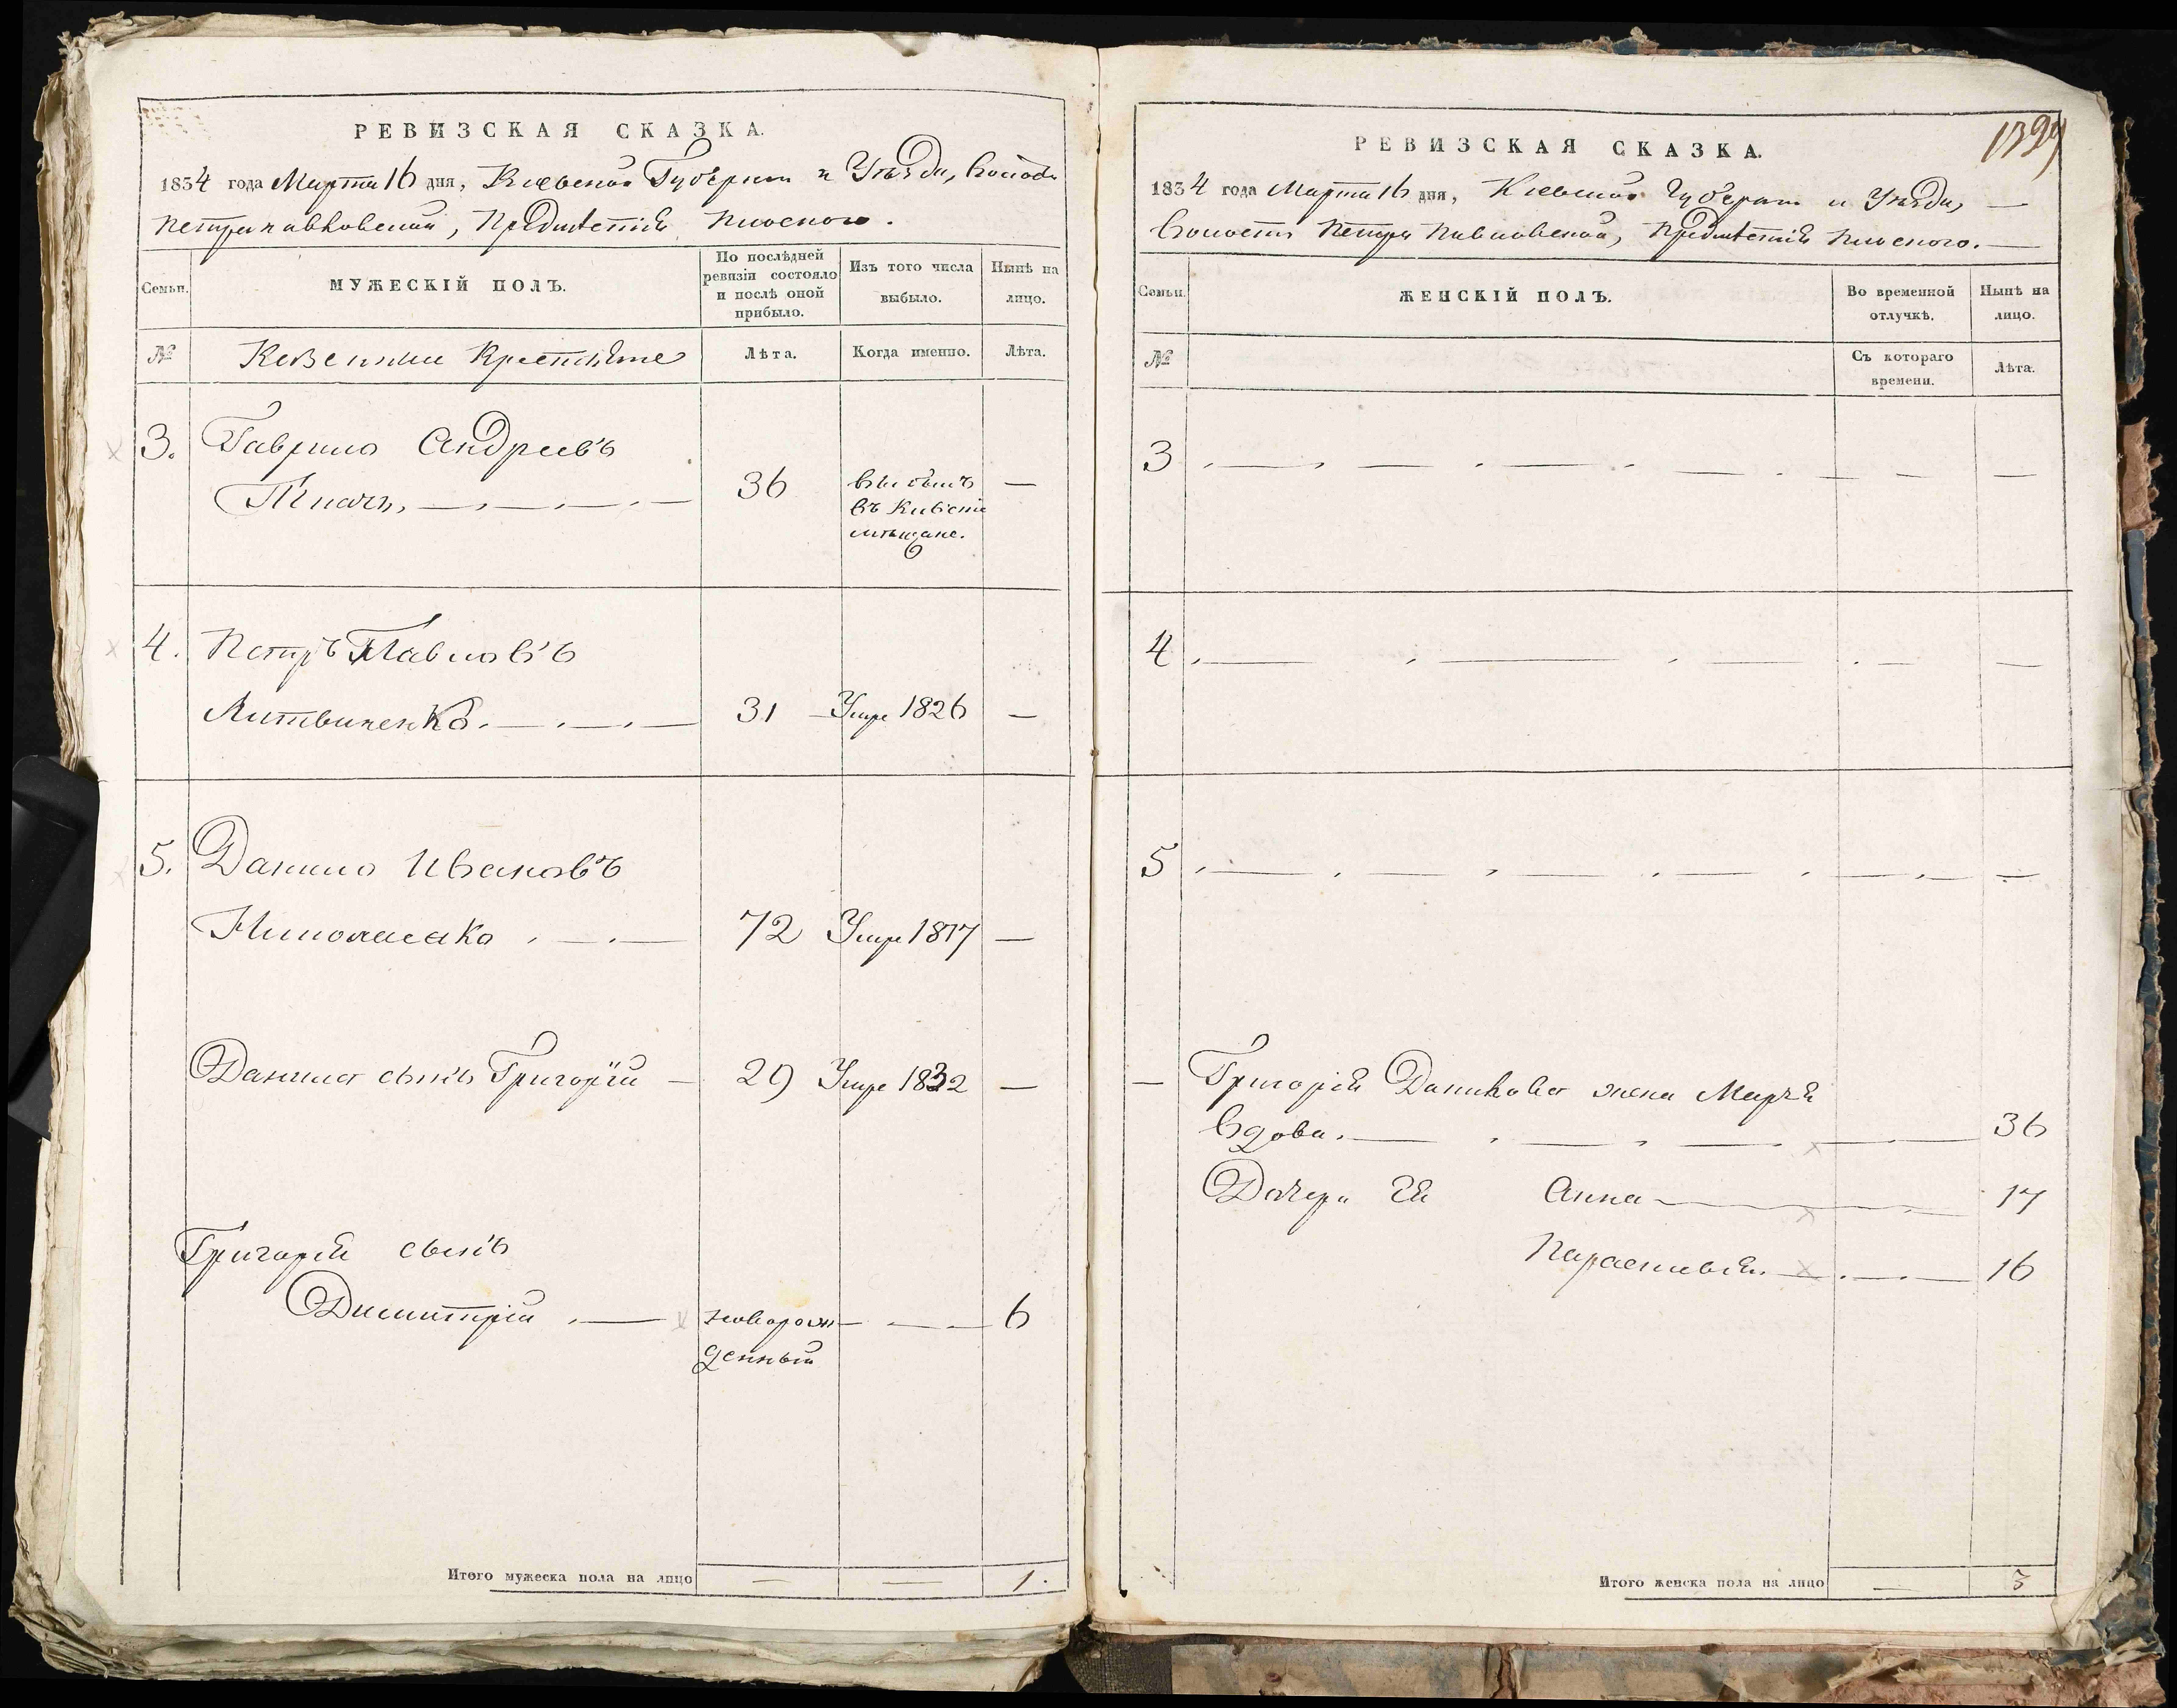 РЕВИЗСКАЯ СКАЗКА.
1834 года Марта 16 дня, Киевской Губернии и Уезда, Волости
Петропавловской, Предместія Плоского.
Семьи.
МУЖЕСКІЙ ПОЛЪ.
По послѣдней ревизіи состояло и послѣ оной прибыло.
Изъ того числа выбыло.
Нынѣ на лицо.
№
Казенные Крестьяне
Лѣта.
Когда именно.
Лѣта.
3. Гаврило Андреевъ
Ткачъ, 36 —
въ Киевскіе
мѣщане.
4. Петръ Павловъ
Литвиненко. 31 Умре 1826 —
5. Данило Ивановъ
72 Умре 1817 —
Данила сынъ Григорій — 29 Умре 1832 —
Григорія сынъ
Димитрій новорож 6
денный
Итого мужеска пола на лицо — — 1.
1399
РЕВИЗСКАЯ СКАЗКА.
1834 года Марта 16 дня, Киевской Губерніи и Уезда,
Волости Петро Павловской, Предместія Плоского.
Семьи.
ЖЕНСКІЙ ПОЛЪ.
Во временной отлучкѣ.
Нынѣ на лицо.
№
Съ котораго времени.
Лѣта.
3
4
5
— Григорія Данилова жена Марія
вдова. 36
Дочери Ея Анна 17
Параскевія. 16
Итого женска пола на лицо — 3